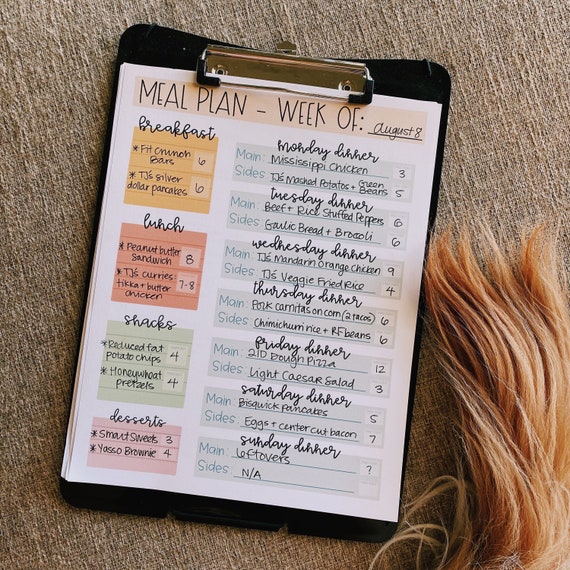 MEAL PLAN - WEEK OF: August 8
breakfast
* Fit Crunch Bars 6
* TJ's silver dollar pancakes 6
lunch
* Peanut butter Sandwich 8
* TJ's curries: tikka + butter chicken 7-8
snacks
* Reduced fat potato chips 4
* Honeywheat pretzels 4
desserts
* Smart Sweets 3
* Yasso Brownie 4
monday dinner
Main: Mississippi Chicken 3
Sides: TJ's Mashed Potatos + Green Beans 5
tuesday dinner
Main: Beef + Rice Stuffed Peppers 6
Sides: Garlic Bread + Broccoli 6
wednesday dinner
Main: TJ's Mandarin Orange Chicken 9
Sides: TJ's Veggie Fried Rice 4
thursday dinner
Main: Pork carnitas on corn (2 tacos) 6
Sides: Chimichurri rice + RF beans 6
friday dinner
Main: 21D Dough Pizza 12
Sides: Light Caesar Salad 3
saturday dinner
Main: Bisquick pancakes 5
Sides: Eggs + center cut bacon 7
sunday dinner
Main: Leftovers ?
Sides: N/A